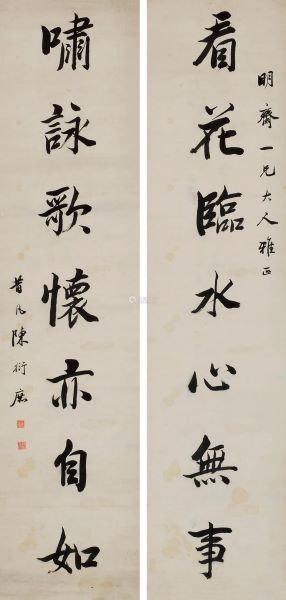 明齋一兄大人雅正
看花臨水心無事
嘯詠歌懷亦自如
昔凡陳衍庶